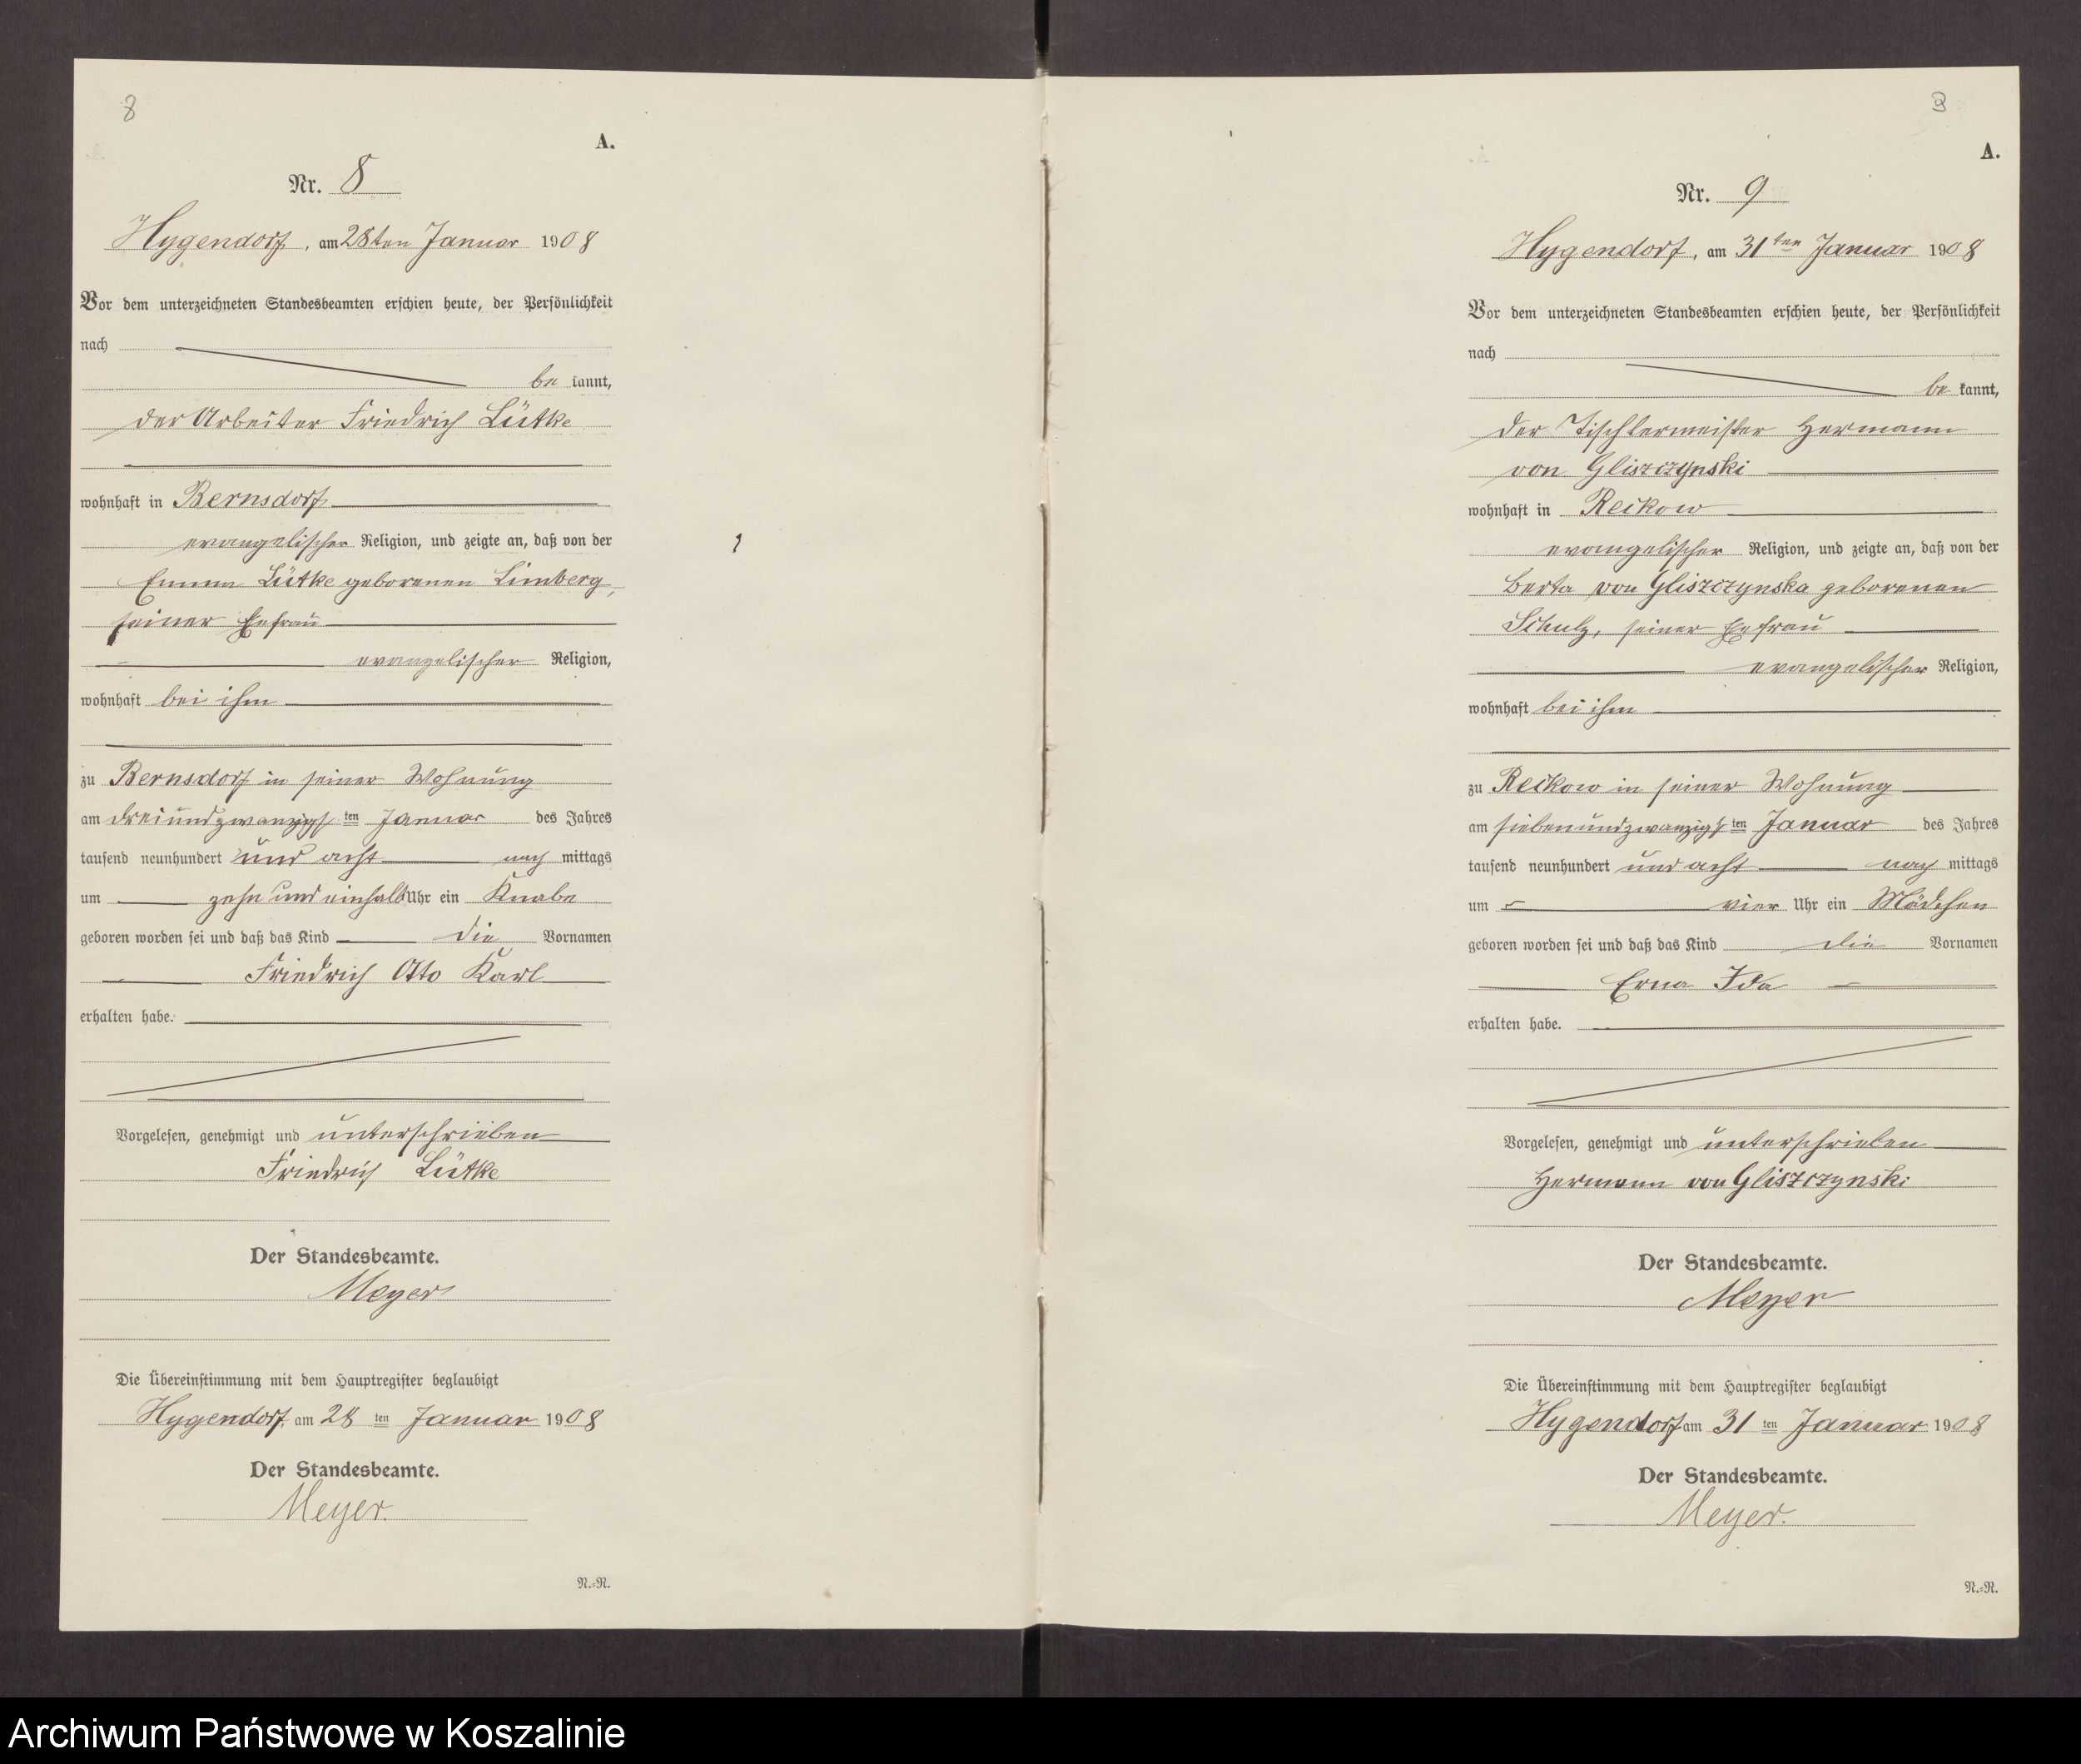 8
A.
Nr. 8
Hygendorf, am 28ten Januar 1908
Vor dem unterzeichneten Standesbeamten erschien heute, der Persönlichkeit
nach
be kannt,
der Arbeiter Friedrich Lütke
wohnhaft in Bernsdorf
evangelischer Religion, und zeigte an, daß von der
Emma Lütke geborenen Limberg,
seiner Ehefrau
evangelischer Religion,
wohnhaft bei ihm
zu Bernsdorf in seiner Wohnung
am dreiundzwanzigsten Januar des Jahres
tausend neunhundert und acht nach mittags
um zehn und einhalb Uhr ein Knabe
geboren worden sei und daß das Kind die Vornamen
Friedrich Otto Karl
erhalten habe.
Vorgelesen, genehmigt und unterschrieben
Friedrich Lütke
Der Standesbeamte.
Meyer
Die Übereinstimmung mit dem Hauptregister beglaubigt
Hygendorf, am 28 ten Januar 1908
Der Standesbeamte.
Meyer.
N.=N.
A.
Nr. 9
Hygendorf, am 31ten Januar 1908
Vor dem unterzeichneten Standesbeamten erschien heute, der Persönlichkeit
nach
be kannt,
der Tischlermeister Hermann
von Gliszczynski
wohnhaft in Reckow
evangelischer Religion, und zeigte an, daß von der
Berta von Gliszczynska geborenen
Schulz, seiner Ehefrau
evangelischer Religion,
wohnhaft bei ihm
zu Reckow in seiner Wohnung
am siebenundzwanzigsten Januar des Jahres
tausend neunhundert und acht nach mittags
um vier Uhr ein Mädchen
geboren worden sei und daß das Kind die Vornamen
Erna Ida
erhalten habe.
Vorgelesen, genehmigt und unterschrieben
Hermann von Gliszczynski
Der Standesbeamte.
Meyer
Die Übereinstimmung mit dem Hauptregister beglaubigt
Hygendorf am 31 ten Januar 1908
Der Standesbeamte.
Meyer.
N.=N.
Archiwum Państwowe w Koszalinie